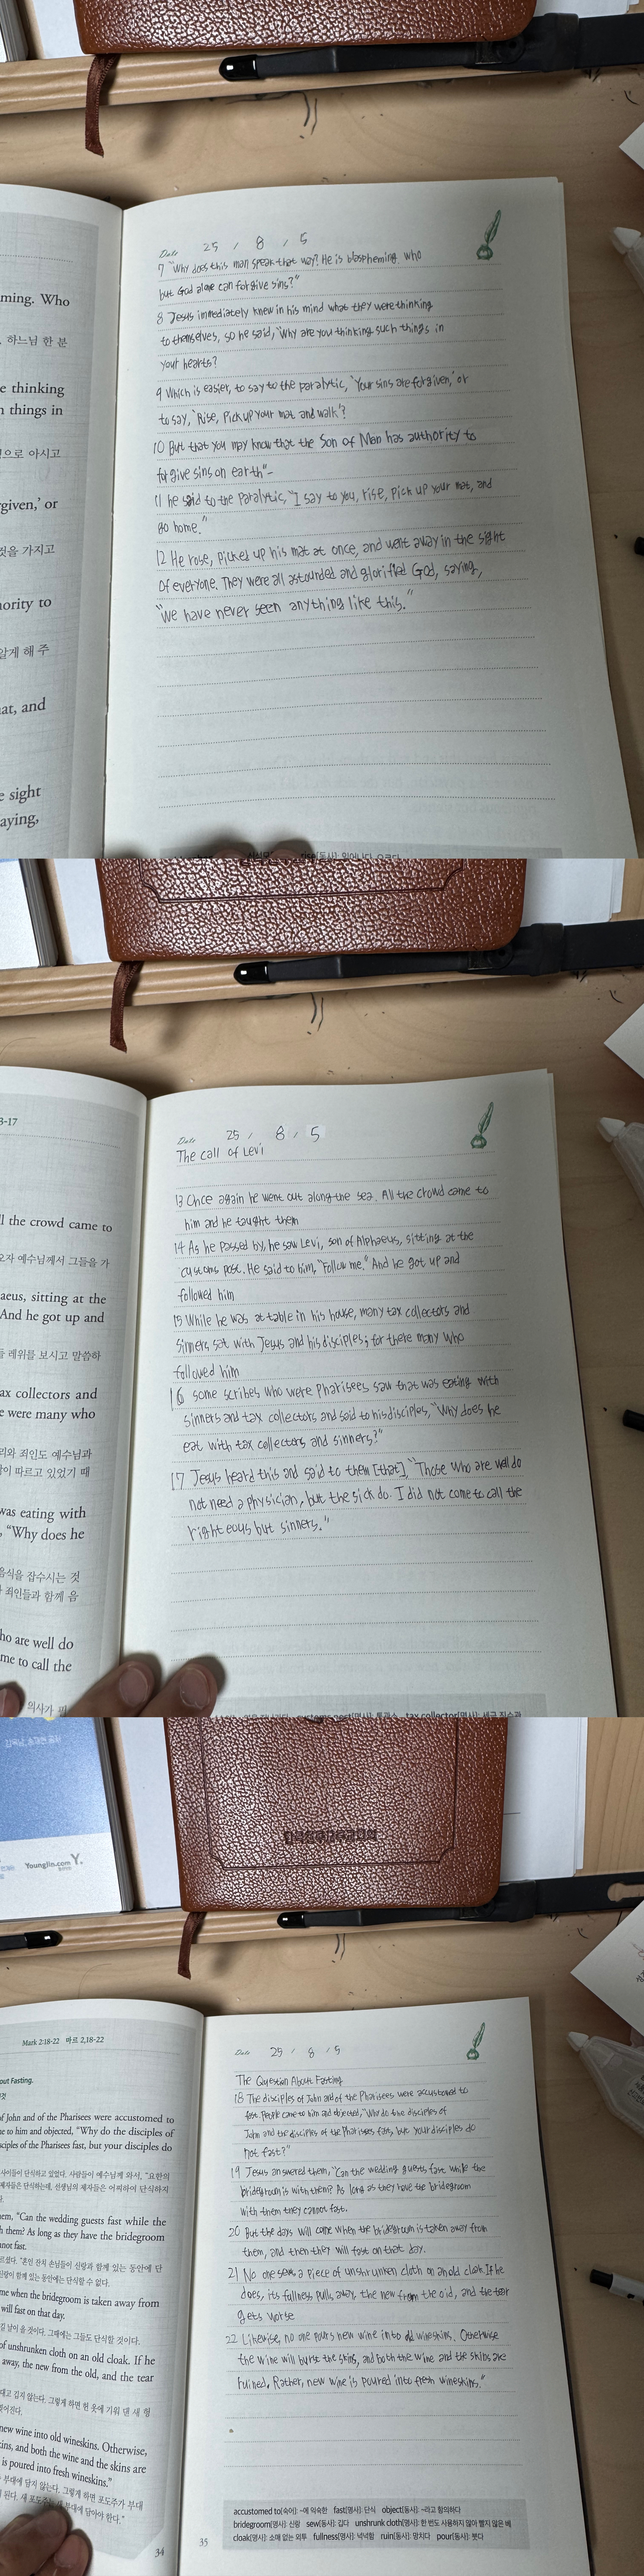 ming. Who
하느님 한 분
e thinking
n things in
으로 아시고
given,’ or
것을 가지고
nority to
알게 해 주
at, and
e sight
aying,
Date 25 / 8 / 5
7 "Why does this man speak that way? He is blaspheming. who
but God alone can forgive sins?"
8 Jesus immediately knew in his mind what they were thinking
to themselves, so he said, "Why are you thinking such things in
your hearts?
9 Which is easier, to say to the paralytic, 'Your sins are forgiven,' or
to say, 'Rise, pick up your mat and walk'?
10 But that you may know that the Son of Man has authority to
forgive sins on earth"-
11 he said to the paralytic, "I say to you, rise, pick up your mat, and
go home."
12 He rose, picked up his mat at once, and went away in the sight
of everyone. They were all astounded and glorified God, saying,
"We have never seen anything like this."
[동사]: 일어나다
3-17
ll the crowd came to
오자 예수님께서 그들을 가
aeus, sitting at the
And he got up and
레위를 보시고 말씀하
ax collectors and
e were many who
리와 죄인도 예수님과
이 따르고 있었기 때
was eating with
, “Why does he
음식을 잡수시는 것
죄인들과 함께 음
ho are well do
me to call the
의사가
Date 25 / 8 / 5
The call of Levi
13 Once again he went out along the sea. All the crowd came to
him and he taught them
14 As he passed by, he saw Levi, son of Alphaeus, sitting at the
customs post. He said to him, "Follow me." And he got up and
followed him
15 While he was at table in his house, many tax collectors and
sinners sat with Jesus and his disciples; for there many who
followed him
16 some scribes who were Pharisees saw that was eating with
sinners and tax collectors and said to his disciples, "Why does he
eat with tax collectors and sinners?"
17 Jesus heard this and said to them [that], "Those who are well do
not need a physician, but the sick do. I did not come to call the
righteous but sinners."
customs post[명사]: 통관소 tax collector[명사]: 세금 징수관
Younglin.com Y.
Mark 2:18-22 마르 2,18-22
out Fasting.
of John and of the Pharisees were accustomed to
e to him and objected, “Why do the disciples of
ciples of the Pharisees fast, but your disciples do
사이들이 단식하고 있었다. 사람들이 예수님께 와서, “요한의
제자들은 단식하는데, 선생님의 제자들은 어찌하여 단식하지
hem, “Can the wedding guests fast while the
h them? As long as they have the bridegroom
nnot fast.
르셨다. “혼인 잔치 손님들이 신랑과 함께 있는 동안에 단
신랑이 함께 있는 동안에는 단식할 수 없다.
me when the bridegroom is taken away from
will fast on that day.
길 날이 올 것이다. 그때에는 그들도 단식할 것이다.
of unshrunken cloth on an old cloak. If he
away, the new from the old, and the tear
대고 깁지 않는다. 그렇게 하면 헌 옷에 기워 댄 새 헝
new wine into old wineskins. Otherwise,
ins, and both the wine and the skins are
is poured into fresh wineskins.”
부대에 담지 않는다. 그렇게 하면 포도주가 부대
된다. 새 포도주는 새 부대에 담아야 한다.”
34
Date 25 / 8 / 5
The Question About Fasting
18 The disciples of John and of the Pharisees were accustomed to
fast. People came to him and objected, "Why do the disciples of
John and the disciples of the Pharisees fast, but your disciples do
not fast?"
19 Jesus answered them, "Can the wedding guests fast while the
bridegroom is with them? As long as they have the bridegroom
with them they cannot fast.
20 But the days will come when the bridegroom is taken away from
them, and then they will fast on that day.
21 No one sews a piece of unshrunken cloth on an old cloak. If he
does, its fullness pulls away, the new from the old, and the tear
gets worse
22 Likewise, no one pours new wine into old wineskins. Otherwise
the wine will burst the skins, and both the wine and the skins are
ruined. Rather, new wine is poured into fresh wineskins."
accustomed to[숙어]: ~에 익숙한 fast[명사]: 단식 object[동사]: ~라고 항의하다
bridegroom[명사]: 신랑 sew[동사]: 깁다 unshrunk cloth[명사]: 한 번도 사용하지 않아 빨지 않은 베
cloak[명사]: 소매 없는 외투 fullness[명사]: 넉넉함 ruin[동사]: 망치다 pour[동사]: 붓다
35